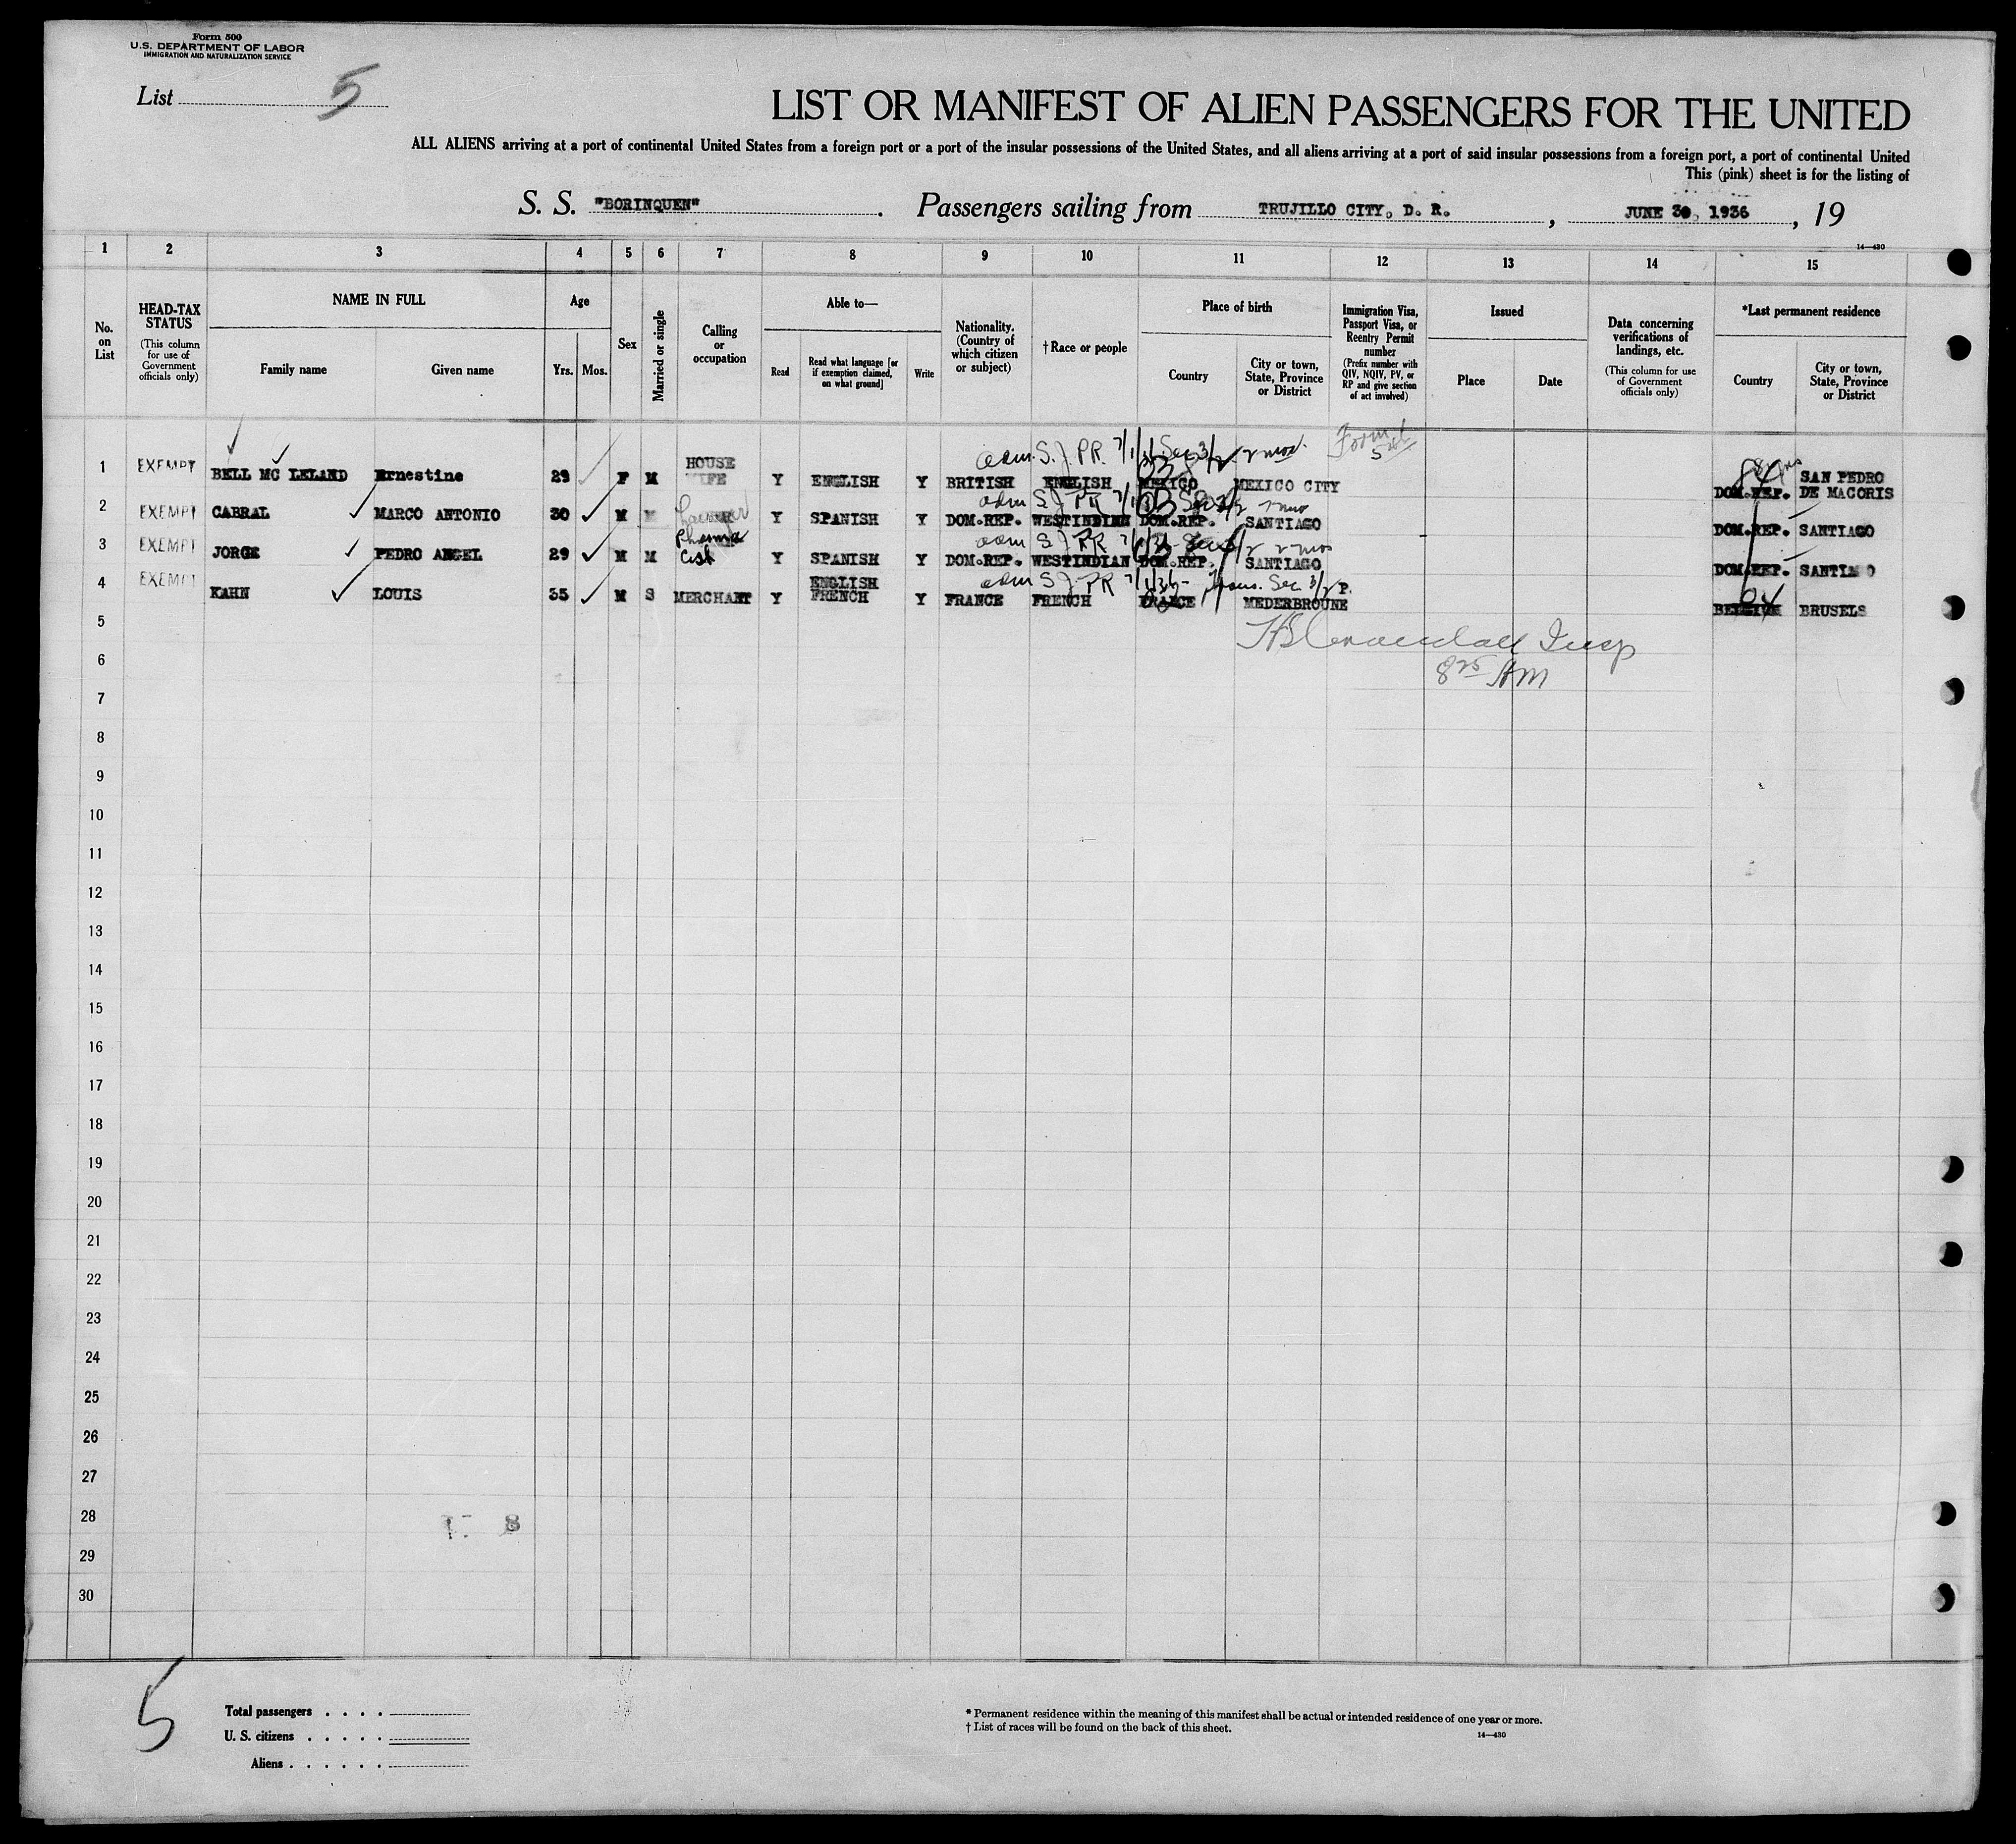 Form 500
U.S. DEPARTMENT OF LABOR
IMMIGRATION AND NATURALIZATION SERVICE
List 5
LIST OR MANIFEST OF ALIEN PASSENGERS FOR THE UNITED
ALL ALIENS arriving at a port of continental United States from a foreign port or a port of the insular possessions of the United States, and all aliens arriving at a port of said insular possessions from a foreign port, a port of continental United
This (pink) sheet is for the listing of
S. S. "BORINQUEN". Passengers sailing from TRUJILLO CITY, D. R., JUNE 30, 1936, 19
14—430
1 2 3 4 5 6 7 8 9 10 11 12 13 14 15
No. on List
HEAD-TAX STATUS
(This column for use of Government officials only)
NAME IN FULL
Family name Given name
Age
Yrs. Mos.
Sex
Married or single
Calling or occupation
Able to—
Read
Read what language [or if exemption claimed, on what ground]
Write
Nationality. (Country of which citizen or subject)
† Race or people
Place of birth
Country
City or town, State, Province or District
Immigration Visa, Passport Visa, or Reentry Permit number
(Prefix number with QIV, NQIV, PV, or RP and give section of act involved)
Issued
Place Date
Data concerning verifications of landings, etc.
(This column for use of Government officials only)
*Last permanent residence
Country
City or town, State, Province or District
adm. S.J. PR. 7/1 Sec 3/2 2 mos.
1 EXEMPT BELL MC LELAND Ernestine 29 F M HOUSE WIFE Y ENGLISH Y BRITISH ENGLISH MEXICO MEXICO CITY DOM.REP. SAN PEDRO DE MACORIS
adm S J PR 7/1
2 EXEMPT CABRAL MARCO ANTONIO 30 M M Y SPANISH Y DOM.REP. WESTINDIAN DOM.REP. SANTIAGO DOM.REP. SANTIAGO
adm S J PR 2 mos
3 EXEMPT JORGE PEDRO ANGEL 29 M M Pharmacist Y SPANISH Y DOM.REP. WESTINDIAN DOM.REP. SANTIAGO DOM.REP. SANTIAGO
adm S J PR 7/1/36 - Trans. Sec 3/2 P.
4 EXEMPT KAHN LOUIS 35 M S MERCHANT Y ENGLISH FRENCH Y FRANCE FRENCH FRANCE MEDERBROUNE BELGIUM BRUSELS
5
Insp
6
8 25 AM
7
8
9
10
11
12
13
14
15
16
17
18
19
20
21
22
23
24
25
26
27
28
29
30
5
Total passengers
U. S. citizens
Aliens
* Permanent residence within the meaning of this manifest shall be actual or intended residence of one year or more.
† List of races will be found on the back of this sheet.
14—430